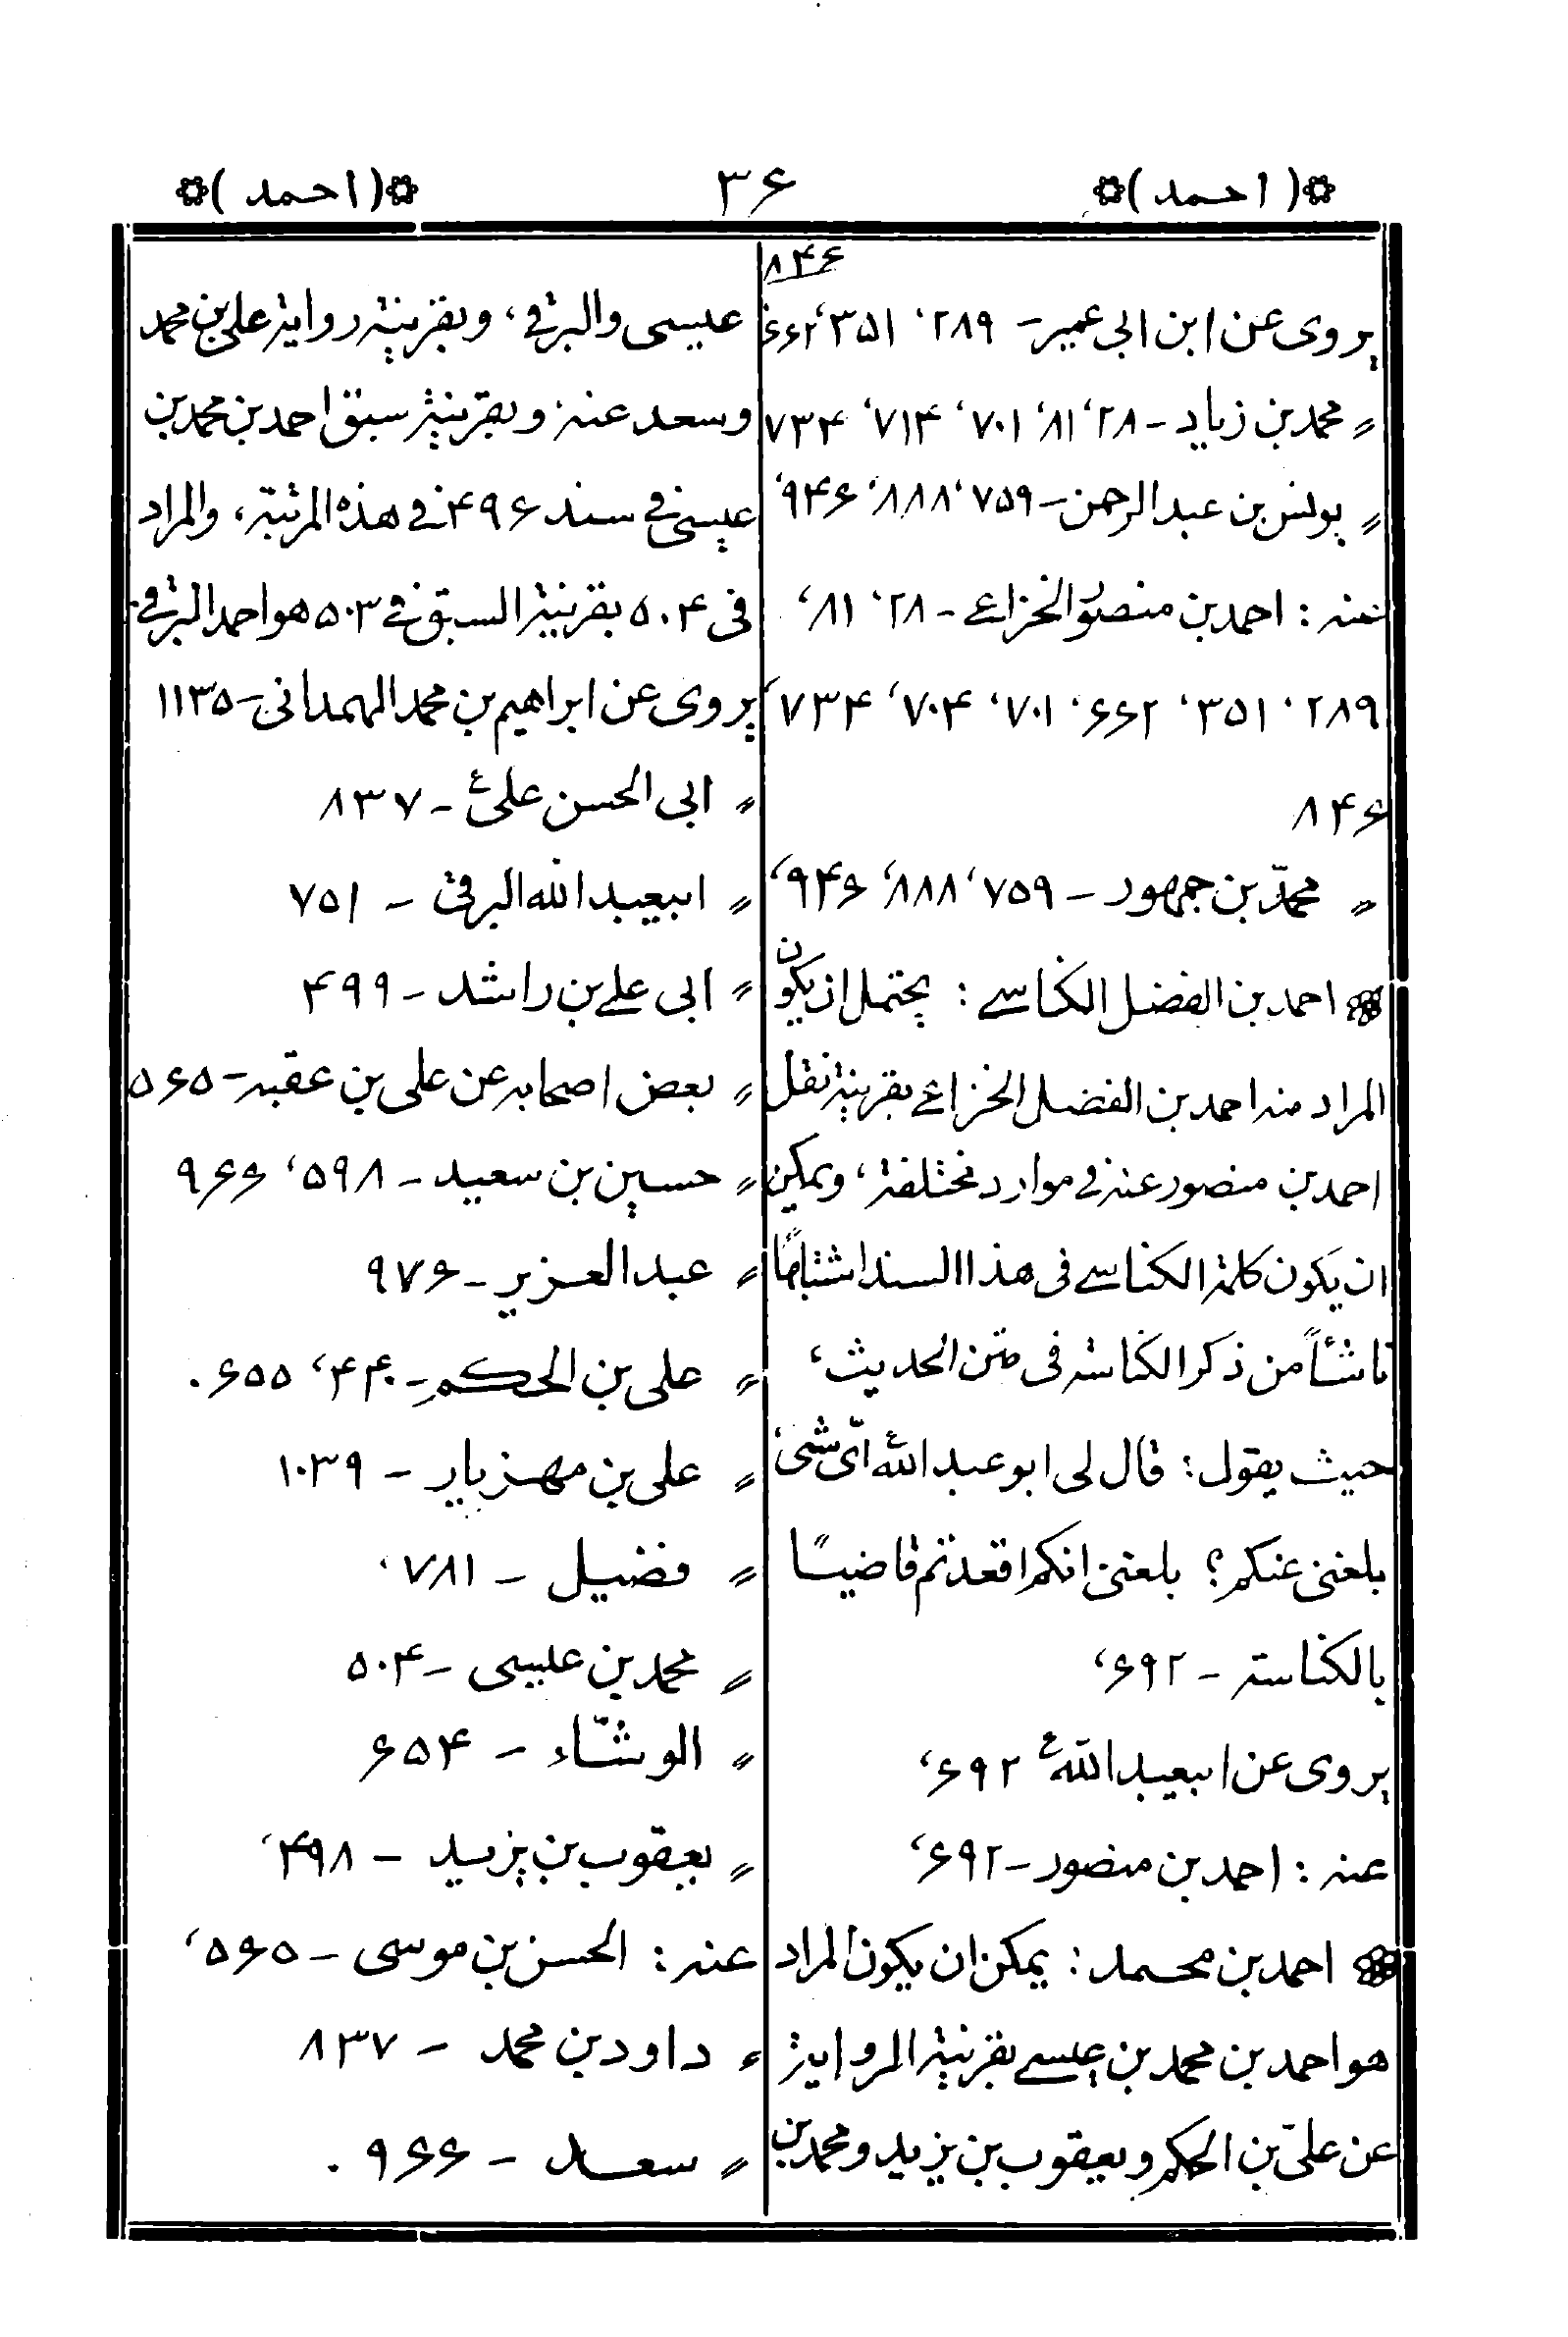 ❁( احمد )❁
۳۶
❁( احمد )❁
۸۴۶
يروى عن ابن ابى عمير - ۲۸۹، ۳۵۱، ۶۶۲،
〃 محمد بن زياد - ۲۸، ۸۱، ۷۰۱، ۷۱۴، ۷۳۴
〃 يونس بن عبد الرحمن - ۷۵۹، ۸۸۸، ۹۴۶،
عنه : احمد بن منصور الخزاعى - ۲۸، ۸۱،
۲۸۹، ۳۵۱، ۶۶۲، ۷۰۱، ۷۰۴، ۷۳۴،
۸۴۶
〃 محمّد بن جمهور - ۷۵۹، ۸۸۸، ۹۴۶،
❁ احمد بن الفضل الكناسى : يحتمل ان يكون
المراد منه احمد بن الفضل الخزاعى بقرينة نقل
احمد بن منصور عنه فى موارد مختلفة، ويمكن
ان يكون كلمة الكناسى فى هذا السند اشتباهًا
ناشئاً من ذكر الكناسة فى متن الحديث،
حيث يقول : قال لى ابو عبد الله ع اىّ شىء
بلغنى عنكم ؟ بلغنى انكم اقعدتم قاضيًا
بالكناسة - ۶۹۲،
يروى عن ابيعبد الله ع ۶۹۲،
عنه : احمد بن منصور - ۶۹۲،
❁ احمد بن محمد : يمكن ان يكون المراد
هو احمد بن محمد بن عيسى بقرينة الرواية
عن علىّ بن الحكم ويعقوب بن يزيد ومحمد بن
عيسى والبرقى، وبقرينة رواية على بن محمد
وسعد عنه، وبقرينة سبق احمد بن محمد بن
عيسى فى سند ۴۹۶ فى هذه المرتبة، والمراد
فى ۵۰۴ بقرينة السبق فى ۵۰۳ هو احمد البرقى.
يروى عن ابراهيم بن محمد الهمدانى - ۱۱۳۵
〃 ابى الحسن على ع - ۸۳۷
〃 ابيعبد الله البرقى - ۷۵۱
〃 ابى على بن راشد - ۴۹۹
〃 بعض اصحابه عن على بن عقبه - ۵۶۵
〃 حسين بن سعيد - ۵۹۸، ۹۶۶
〃 عبد العزيز - ۹۷۶
〃 على بن الحكم - ۴۴۰، ۶۵۵.
〃 على بن مهزيار - ۱۰۳۹
〃 فضيل - ۷۸۱،
〃 محمد بن عيسى - ۵۰۴
〃 الوشّاء - ۶۵۴
〃 يعقوب بن يزيد - ۴۹۸،
عنه : الحسن بن موسى - ۵۶۵،
〃 داود بن محمد - ۸۳۷
〃 سعد - ۹۶۶.